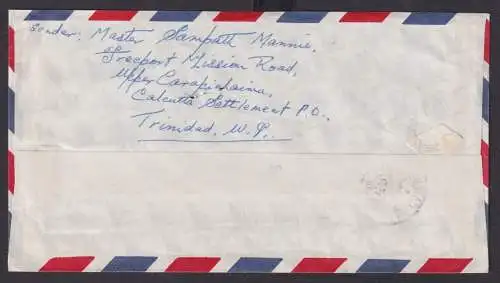 Sender: Master Sampath Mannie,
Freeport Mission Road,
Upper Carapichaima,
Calcutta Settlement P.O.,
Trinidad, W.I.